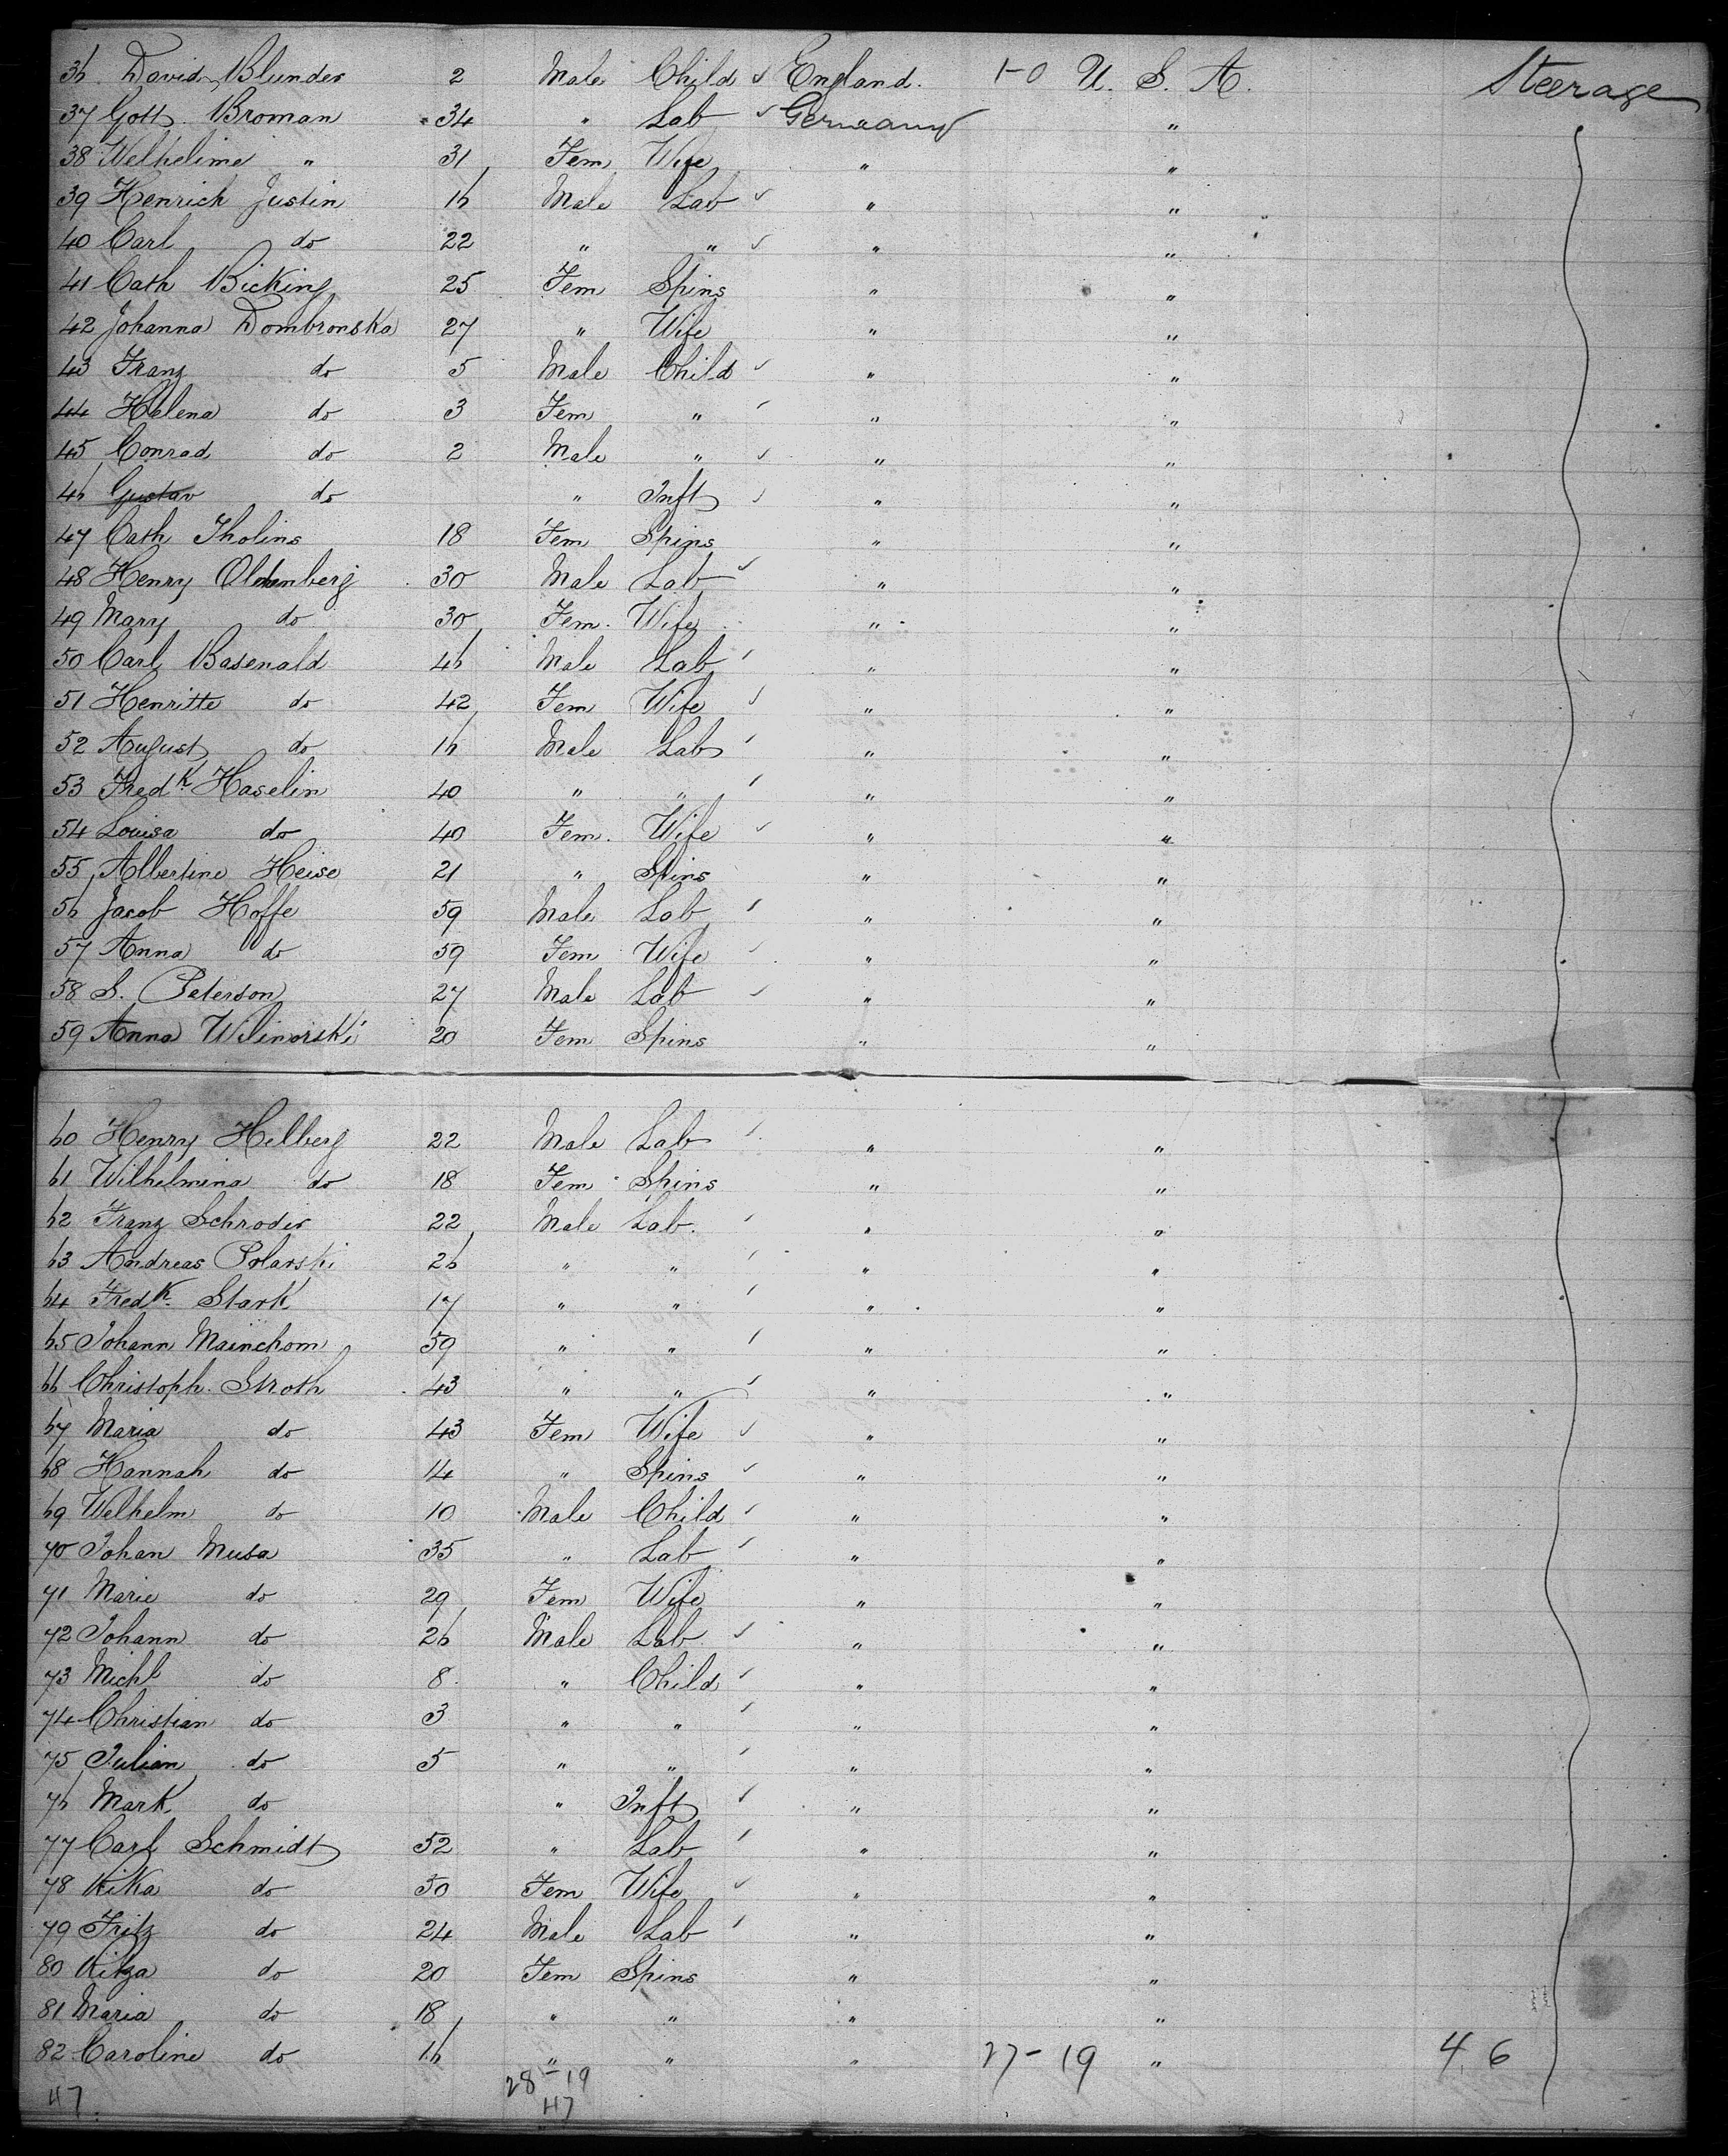 36 David Blunder 2 Male Child ✓ England. 1-0 U. S. A. Steerage
37 Gott. Broman 34 " Lab ✓ Germany "
38 Welhelime " 31 Fem Wife " "
39 Henrich Justin 16 Male Lab ✓ " "
40 Carl do 22 " " ✓ " "
41 Cath Bicking 25 Fem Spins " "
42 Johanna Dombronska 27 " Wife " "
43 Franz do 5 Male Child ✓ " "
44 Helena do 3 Fem " ✓ " "
45 Conrad do 2 Male " ✓ " "
46 Gustav do " Inft ✓ " "
47 Cath Tholins 18 Fem Spins " "
48 Henry Oldenberg 30 Male Lab ✓ " "
49 Mary do 30 Fem. Wife " "
50 Carl Basenald 46 Male Lab ✓ " "
51 Henritte do 42 Fem Wife ✓ " "
52 August do 16 Male Lab ✓ " "
53 Fredk Haselin 40 " " ✓ " "
54 Louisa do 40 Fem. Wife ✓ " "
55 Albertine Heise 21 " Spins " "
56 Jacob Hoffe 59 Male Lab ✓ " "
57 Anna do 59 Fem Wife ✓ " "
58 S. Peterson 27 Male Lab ✓ " "
59 Anna Wilinorski 20 Fem Spins " "
60 Henry Helberg 22 Male Lab ✓ " "
61 Wilhelmina do 18 Fem Spins " "
62 Franz Schroder 22 Male Lab. ✓ " "
63 Andreas Polarski 26 " " ✓ " "
64 Fredk. Stark 17 " " ✓ " "
65 Johann Mainchom 59 " " ✓ " "
66 Christoph. Stroth 43 " " ✓ " "
67 Maria do 43 Fem Wife ✓ " "
68 Hannah do 14 " Spins ✓ " "
69 Welhelm do 10 Male Child ✓ " "
70 Johan Musa 35 " Lab ✓ " "
71 Marie do 29 Fem Wife " "
72 Johann do 26 Male Lab ✓ " "
73 Michl do 8 " Child ✓ " "
74 Christian do 3 " " ✓ " "
75 Julian do 5 " " ✓ " "
76 Mark do " Inft ✓ " "
77 Carl Schmidt 52 " Lab ✓ " "
78 Rika do 50 Fem Wife ✓ " "
79 Fritz do 24 Male Lab ✓ " "
80 do 20 Fem Spins " "
81 Maria do 18 " " " "
82 Caroline do 16 " " " 27-19 " 46
47 28-19
47